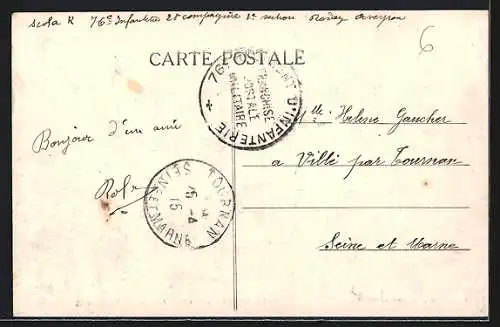 Scola R 76e Infanterie 2e compagnie 1e section Rodez Aveyron
6
CARTE POSTALE
76 REGIMENT D'INFANTERIE
FRANCHISE
POSTALE
MILITAIRE
Mlle Helene Gaucher
Bonjour d'un ami
a Villé par Tournan
TOURNAN
4
15
SEINE ET MARNE
Seine et Marne